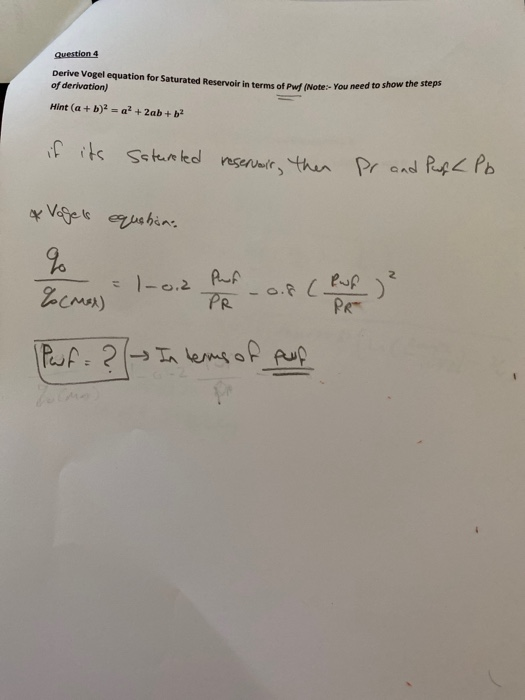 Question 4
Derive Vogel equation for Saturated Reservoir in terms of Pwf (Note:- You need to show the steps
of derivation)
Hint (a + b)² = a² + 2ab + b²
if its Saturated reservoir, then Pr and Pwf < Pb
* Vogel's equation:
qo / qo(max) = 1 - 0.2 Pwf / PR - 0.8 ( Pwf / PR )²
Pwf = ? → In terms of pwf